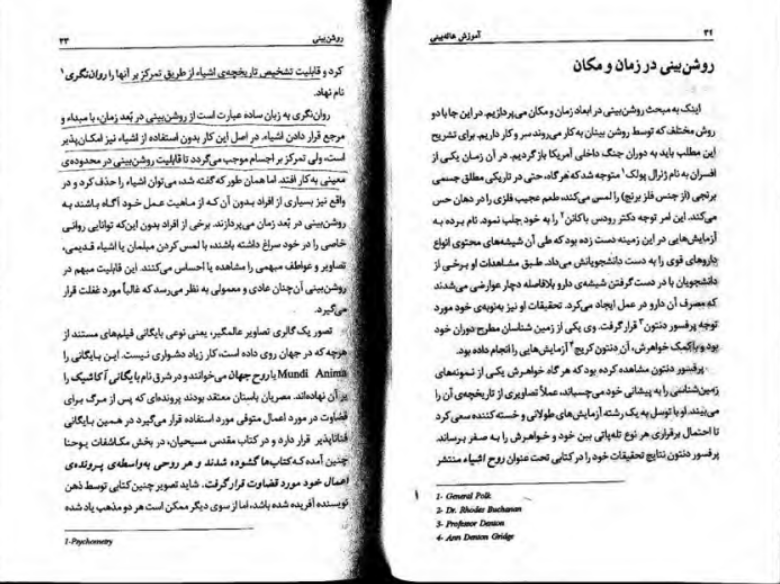 ۳۲ آموزش هاله‌بینی
روشن‌بینی در زمان و مکان
اینک به مبحث روشن‌بینی در ابعاد زمان و مکان می‌پردازیم. در این جا با دو
روش مختلف که توسط روشن بینان به کار می‌روند سر و کار داریم. برای تشریح
این مطلب باید به دوران جنگ داخلی آمریکا باز گردیم. در آن زمان یکی از
افسران به نام ژنرال پولک۱ متوجه شد که هر گاه، حتی در تاریکی مطلق جسمی
برنجی (از جنس فلز برنج) را لمس می‌کند، طعم عجیب فلزی را در دهان حس
می‌کند. این امر توجه دکتر رودس باکانن۲ را به خود جلب نمود. نام برده به
آزمایش‌هایی در این زمینه دست زده بود که طی آن شیشه‌های محتوی انواع
داروهای قوی را به دست دانشجویانش می‌داد. طبق مشاهدات او برخی از
دانشجویان با در دست گرفتن شیشه‌ی دارو بلافاصله دچار عوارضی می‌شدند
که مصرف آن دارو در عمل ایجاد می‌کرد. تحقیقات او نیز به‌نوبه‌ی خود مورد
توجه پرفسور دنتون۳ قرار گرفت. وی یکی از زمین شناسان مطرح دوران خود
بود و با کمک خواهرش، آن دنتون کریج۴ آزمایش‌هایی را انجام داده بود.
پرفسور دنتون مشاهده کرده بود که هر گاه خواهرش یکی از نمونه‌های
زمین‌شناسی را به پیشانی خود می‌چسباند، عملاً تصاویری از تاریخچه‌ی آن را
می‌بیند. او با توسل به یک رشته آزمایش‌های طولانی و خسته کننده سعی کرد
تا احتمال برقراری هر نوع تله‌پاتی بین خود و خواهرش را به صفر برساند.
پرفسور دنتون نتایج تحقیقات خود را در کتابی تحت عنوان روح اشیاء منتشر
1- General Polk
2- Dr. Rhodes Buchanan
3- Professor Denton
4- Ann Denton Gridge
روشن‌بینی ۳۳
کرد و قابلیت تشخیص تاریخچه‌ی اشیاء از طریق تمرکز بر آنها را روان‌نگری۱
نام نهاد.
روان‌نگری به زبان ساده عبارت است از روشن‌بینی در بُعد زمان، با مبداء و
مرجع قرار دادن اشیاء. در اصل این کار بدون استفاده از اشیاء نیز امکان‌پذیر
است، ولی تمرکز بر اجسام موجب می‌گردد تا قابلیت روشن‌بینی در محدوده‌ی
معینی به کار افتد. اما همان طور که گفته شد، می‌توان اشیاء را حذف کرد و در
واقع نیز بسیاری از افراد بدون آن که از ماهیت عمل خود آگاه باشند به
روشن‌بینی در بُعد زمان می‌پردازند. برخی از افراد بدون این‌که توانایی روانی
خاصی را در خود سراغ داشته باشند، با لمس کردن مبلمان یا اشیاء قدیمی،
تصاویر و عواطف مبهمی را مشاهده یا احساس می‌کنند. این قابلیت مبهم در
روشن‌بینی آن‌چنان عادی و معمولی به نظر می‌رسد که غالباً مورد غفلت قرار
می‌گیرد.
تصور یک گالری تصاویر عالمگیر، یعنی نوعی بایگانی فیلم‌های مستند از
هرچه که در جهان روی داده است، کار زیاد دشواری نیست. این بایگانی را
Mundi Anima یا روح جهان می‌خوانند و در شرق نام بایگانی آکاشیک را
بر آن نهاده‌اند. مصریان باستان معتقد بودند پرونده‌ای که پس از مرگ برای
قضاوت در مورد اعمال متوفی مورد استفاده قرار می‌گیرد در همین بایگانی
فناناپذیر قرار دارد و در کتاب مقدس مسیحیان، در بخش مکاشفات یوحنا
چنین آمده که کتاب‌ها گشوده شدند و هر روحی به‌واسطه‌ی پرونده‌ی
اعمال خود مورد قضاوت قرار گرفت. شاید تصویر چنین کتابی توسط ذهن
نویسنده آفریده شده باشد، اما از سوی دیگر ممکن است هر دو مذهب یاد شده
1-Psychometry